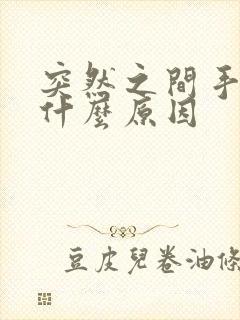 突然之間手
什麼原因
豆皮兒卷油條